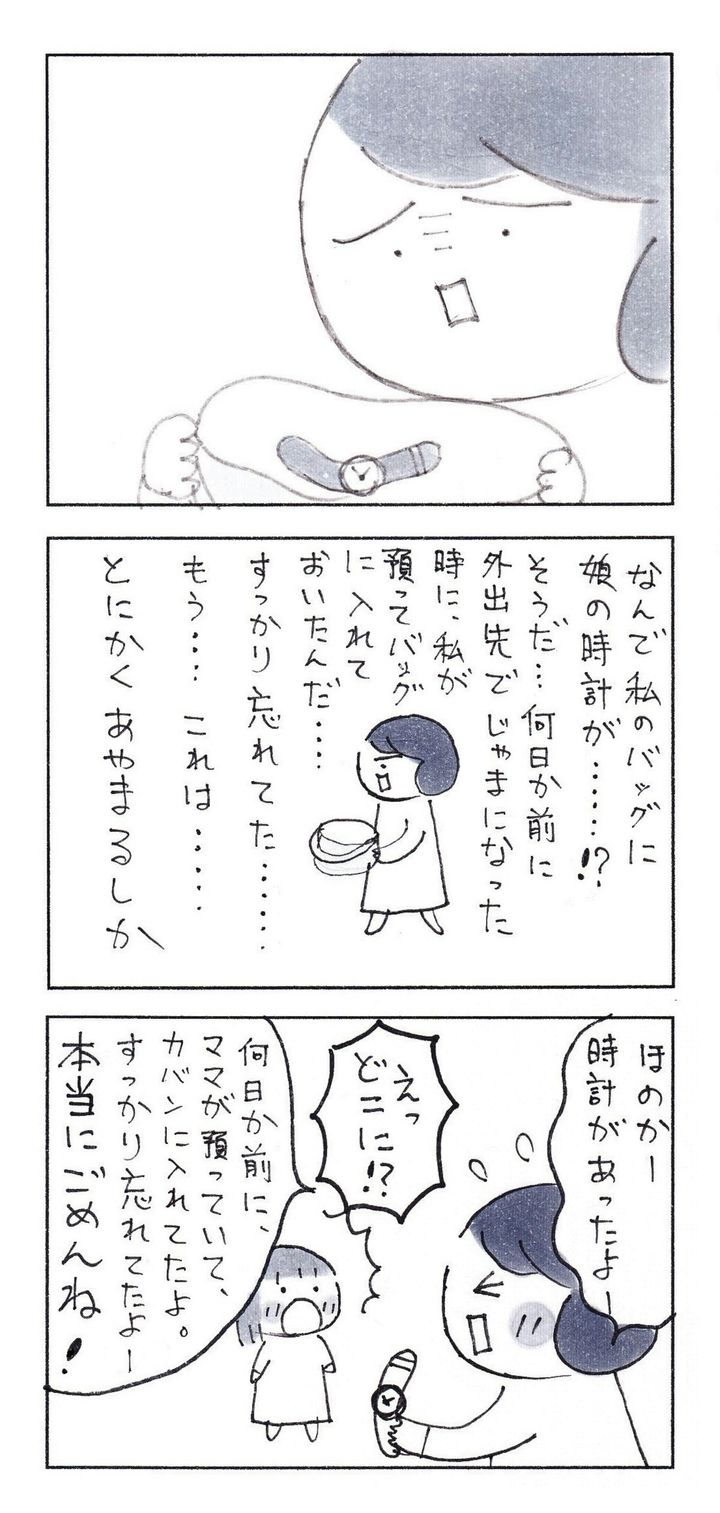 なんで私のバッグに
娘の時計が……!?
そうだ…何日か前に
外出先でじゃまになった
時に、私が
預ってバッグ
に入れて
おいたんだ‥‥
すっかり忘れてた……
もう…これは……
とにかくあやまるしか
ほのかー
時計があったよー
えっ
どこに!?
何日か前に、
ママが預っていて、
カバンに入れてたよ。
すっかり忘れてたよー
本当にごめんね!